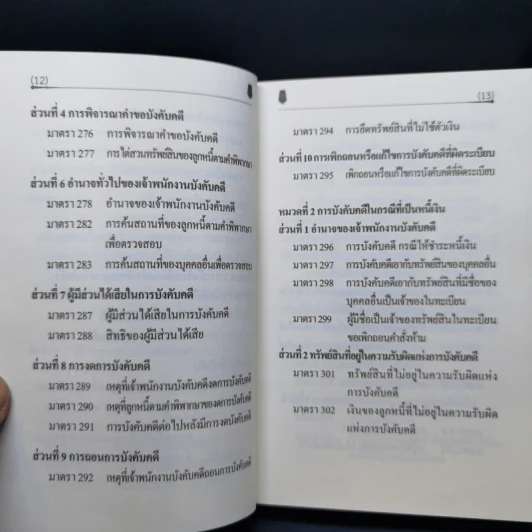 (12)
ส่วนที่ 4 การพิจารณาคำขอบังคับคดี
มาตรา 276 การพิจารณาคำขอบังคับคดี
มาตรา 277 การไต่สวนทรัพย์สินของลูกหนี้ตามคำพิพากษา
ส่วนที่ 6 อำนาจทั่วไปของเจ้าพนักงานบังคับคดี
มาตรา 278 อำนาจของเจ้าพนักงานบังคับคดี
มาตรา 282 การค้นสถานที่ของลูกหนี้ตามคำพิพากษา
เพื่อตรวจสอบ
มาตรา 283 การค้นสถานที่ของบุคคลอื่นเพื่อตรวจสอบ
ส่วนที่ 7 ผู้มีส่วนได้เสียในการบังคับคดี
มาตรา 287 ผู้มีส่วนได้เสียในการบังคับคดี
มาตรา 288 สิทธิของผู้มีส่วนได้เสีย
ส่วนที่ 8 การงดการบังคับคดี
มาตรา 289 เหตุที่เจ้าพนักงานบังคับคดีงดการบังคับคดี
มาตรา 290 เหตุที่ลูกหนี้ตามคำพิพากษาขอของดการบังคับคดี
มาตรา 291 การบังคับคดีต่อไปหลังมีการงดบังคับคดี
ส่วนที่ 9 การถอนการบังคับคดี
มาตรา 292 เหตุที่เจ้าพนักงานบังคับคดีถอนการบังคับคดี
(13)
มาตรา 294 การยึดทรัพย์สินที่ไม่ใช่ตัวเงิน
ส่วนที่ 10 การเพิกถอนหรือแก้ไขการบังคับคดีที่ผิดระเบียบ
มาตรา 295 เพิกถอนหรือแก้ไขการบังคับคดีที่ผิดระเบียบ
หมวดที่ 2 การบังคับคดีในกรณีที่เป็นหนี้เงิน
ส่วนที่ 1 อำนาจของเจ้าพนักงานบังคับคดี
มาตรา 296 การบังคับคดี กรณีให้ชำระหนี้เงิน
มาตรา 297 การบังคับคดีเอากับทรัพย์สินของบุคคลอื่น
มาตรา 298 การบังคับคดีเอากับทรัพย์สินที่มีชื่อของ
บุคคลอื่นเป็นเจ้าของในทะเบียน
มาตรา 299 ผู้มีชื่อเป็นเจ้าของทรัพย์สินในทะเบียน
ขอเพิกถอนคำสั่งห้าม
ส่วนที่ 2 ทรัพย์สินที่อยู่ในความรับผิดแห่งการบังคับคดี
มาตรา 301 ทรัพย์สินที่ไม่อยู่ในความรับผิดแห่ง
การบังคับคดี
มาตรา 302 เงินของลูกหนี้ที่ไม่อยู่ในความรับผิด
แห่งการบังคับคดี